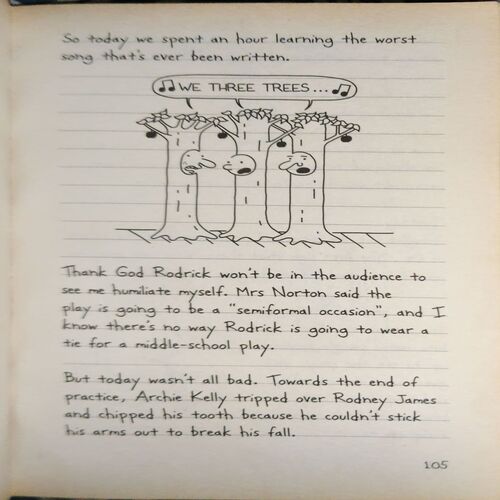 So today we spent an hour learning the worst
song that's ever been written.
♫WE THREE TREES...♪
Thank God Rodrick won't be in the audience to
see me humiliate myself. Mrs Norton said the
play is going to be a "semiformal occasion", and I
know there's no way Rodrick is going to wear a
tie for a middle-school play.
But today wasn't all bad. Towards the end of
practice, Archie Kelly tripped over Rodney James
and chipped his tooth because he couldn't stick
his arms out to break his fall.
105